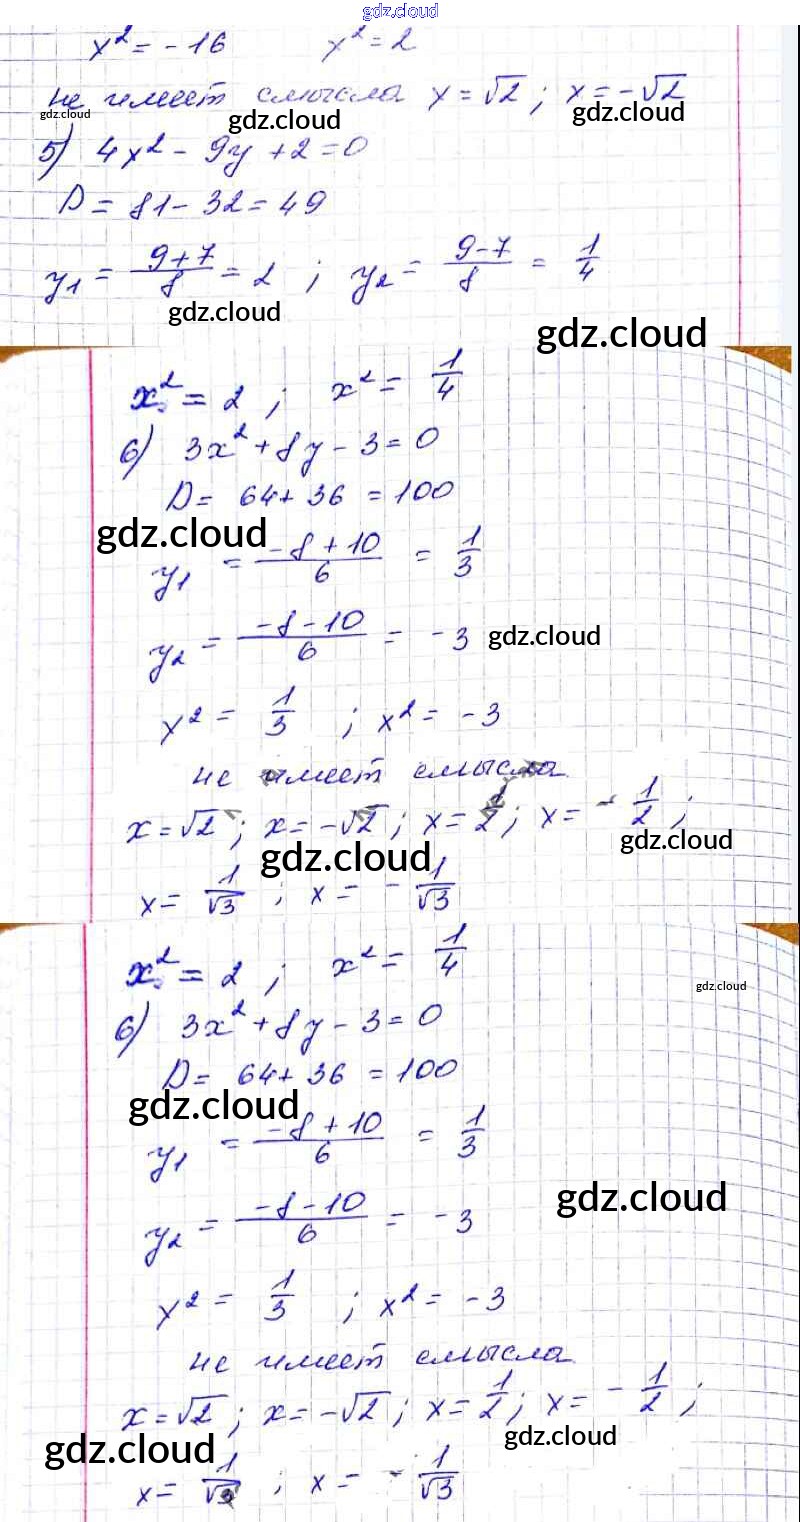 gdz.cloud
x² = -16 x² = 2
не имеет смысла x = √2 ; x = -√2
gdz.cloud gdz.cloud gdz.cloud
5) 4x² - 9y + 2 = 0
D = 81 - 32 = 49
y₁ = (9+7)/8 = 2 ; y₂ = (9-7)/8 = 1/4
gdz.cloud gdz.cloud
x² = 2 ; x² = 1/4
6) 3x² + 8y - 3 = 0
D = 64 + 36 = 100
gdz.cloud
y₁ = (-8+10)/6 = 1/3
y₂ = (-8-10)/6 = -3 gdz.cloud
x² = 1/3 ; x² = -3
не имеет смысла
x = √2 ; x = -√2 ; x = 1/2 ; x = -1/2 ;
gdz.cloud gdz.cloud
x = 1/√3 ; x = -1/√3
x² = 2 ; x² = 1/4
gdz.cloud
6) 3x² + 8y - 3 = 0
D = 64 + 36 = 100
gdz.cloud
y₁ = (-8+10)/6 = 1/3
gdz.cloud
y₂ = (-8-10)/6 = -3
x² = 1/3 ; x² = -3
не имеет смысла
x = √2 ; x = -√2 ; x = 1/2 ; x = -1/2 ;
gdz.cloud gdz.cloud
x = 1/√3 ; x = -1/√3